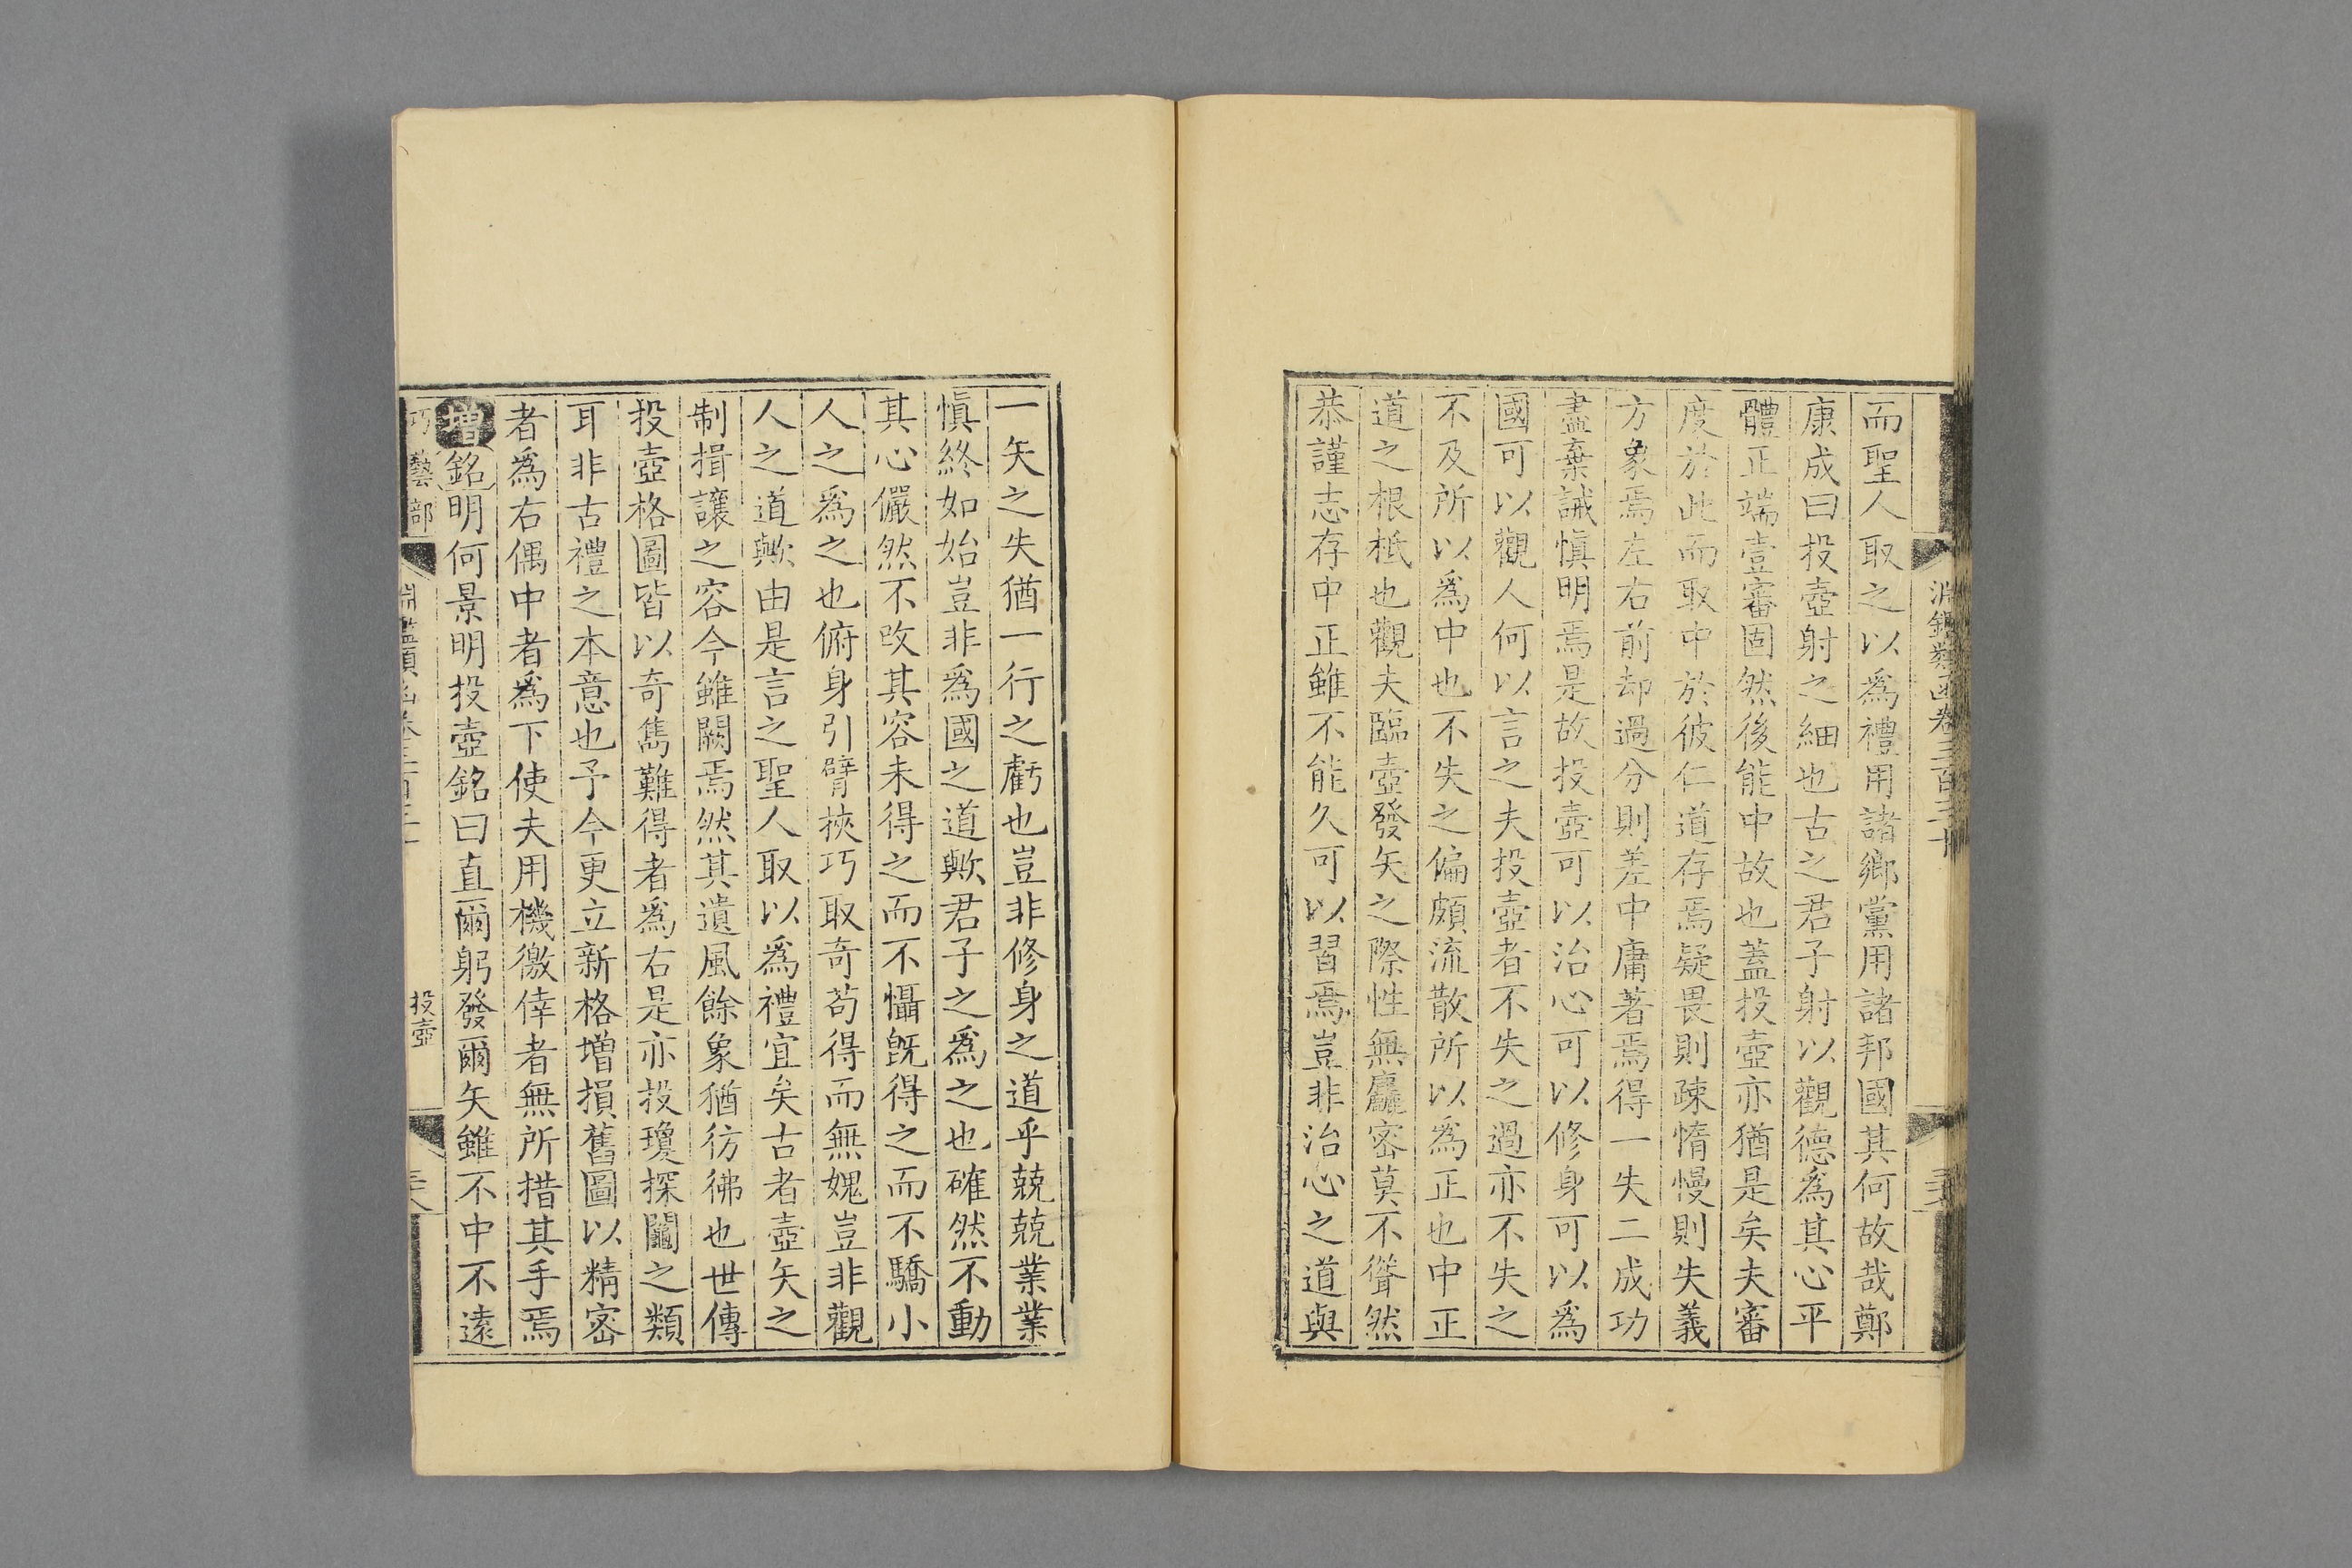 淵鑑類函卷三百三十
而聖人取之以爲禮用諸鄉黨用諸邦國其何故哉鄭
康成曰投壺射之細也古之君子射以觀德爲其心平
體正端壹審固然後能中故也蓋投壺亦猶是矣夫審
度於此而取中於彼仁道存焉疑畏則疎惰慢則失義
方象焉左右前却過分則差中庸著焉得一失二成功
盡棄誡愼明焉是故投壺可以治心可以修身可以爲
國可以觀人何以言之夫投壺者不失之過亦不失之
不及所以爲中也不失之偏頗流散所以爲正也中正
道之根柢也觀夫臨壺發矢之際性無麤密莫不聳然
恭謹志存中正雖不能久可以習焉豈非治心之道與
一矢之失猶一行之虧也豈非修身之道乎兢兢業業
愼終如始豈非爲國之道歟君子之爲之也確然不動
其心儼然不改其容未得之而不懾旣得之而不驕小
人之爲之也俯身引臂挾巧取奇苟得而無媿豈非觀
人之道歟由是言之聖人取以爲禮宜矣古者壺矢之
制揖讓之容今雖闕焉然其遺風餘象猶彷彿也世傳
投壺格圖皆以奇雋難得者爲右是亦投瓊探鬮之類
耳非古禮之本意也予今更立新格增損舊圖以精密
者爲右偶中者爲下使夫用機徼倖者無所措其手焉
增銘明何景明投壺銘曰直爾躬發爾矢雖不中不遠
巧藝部
投壺